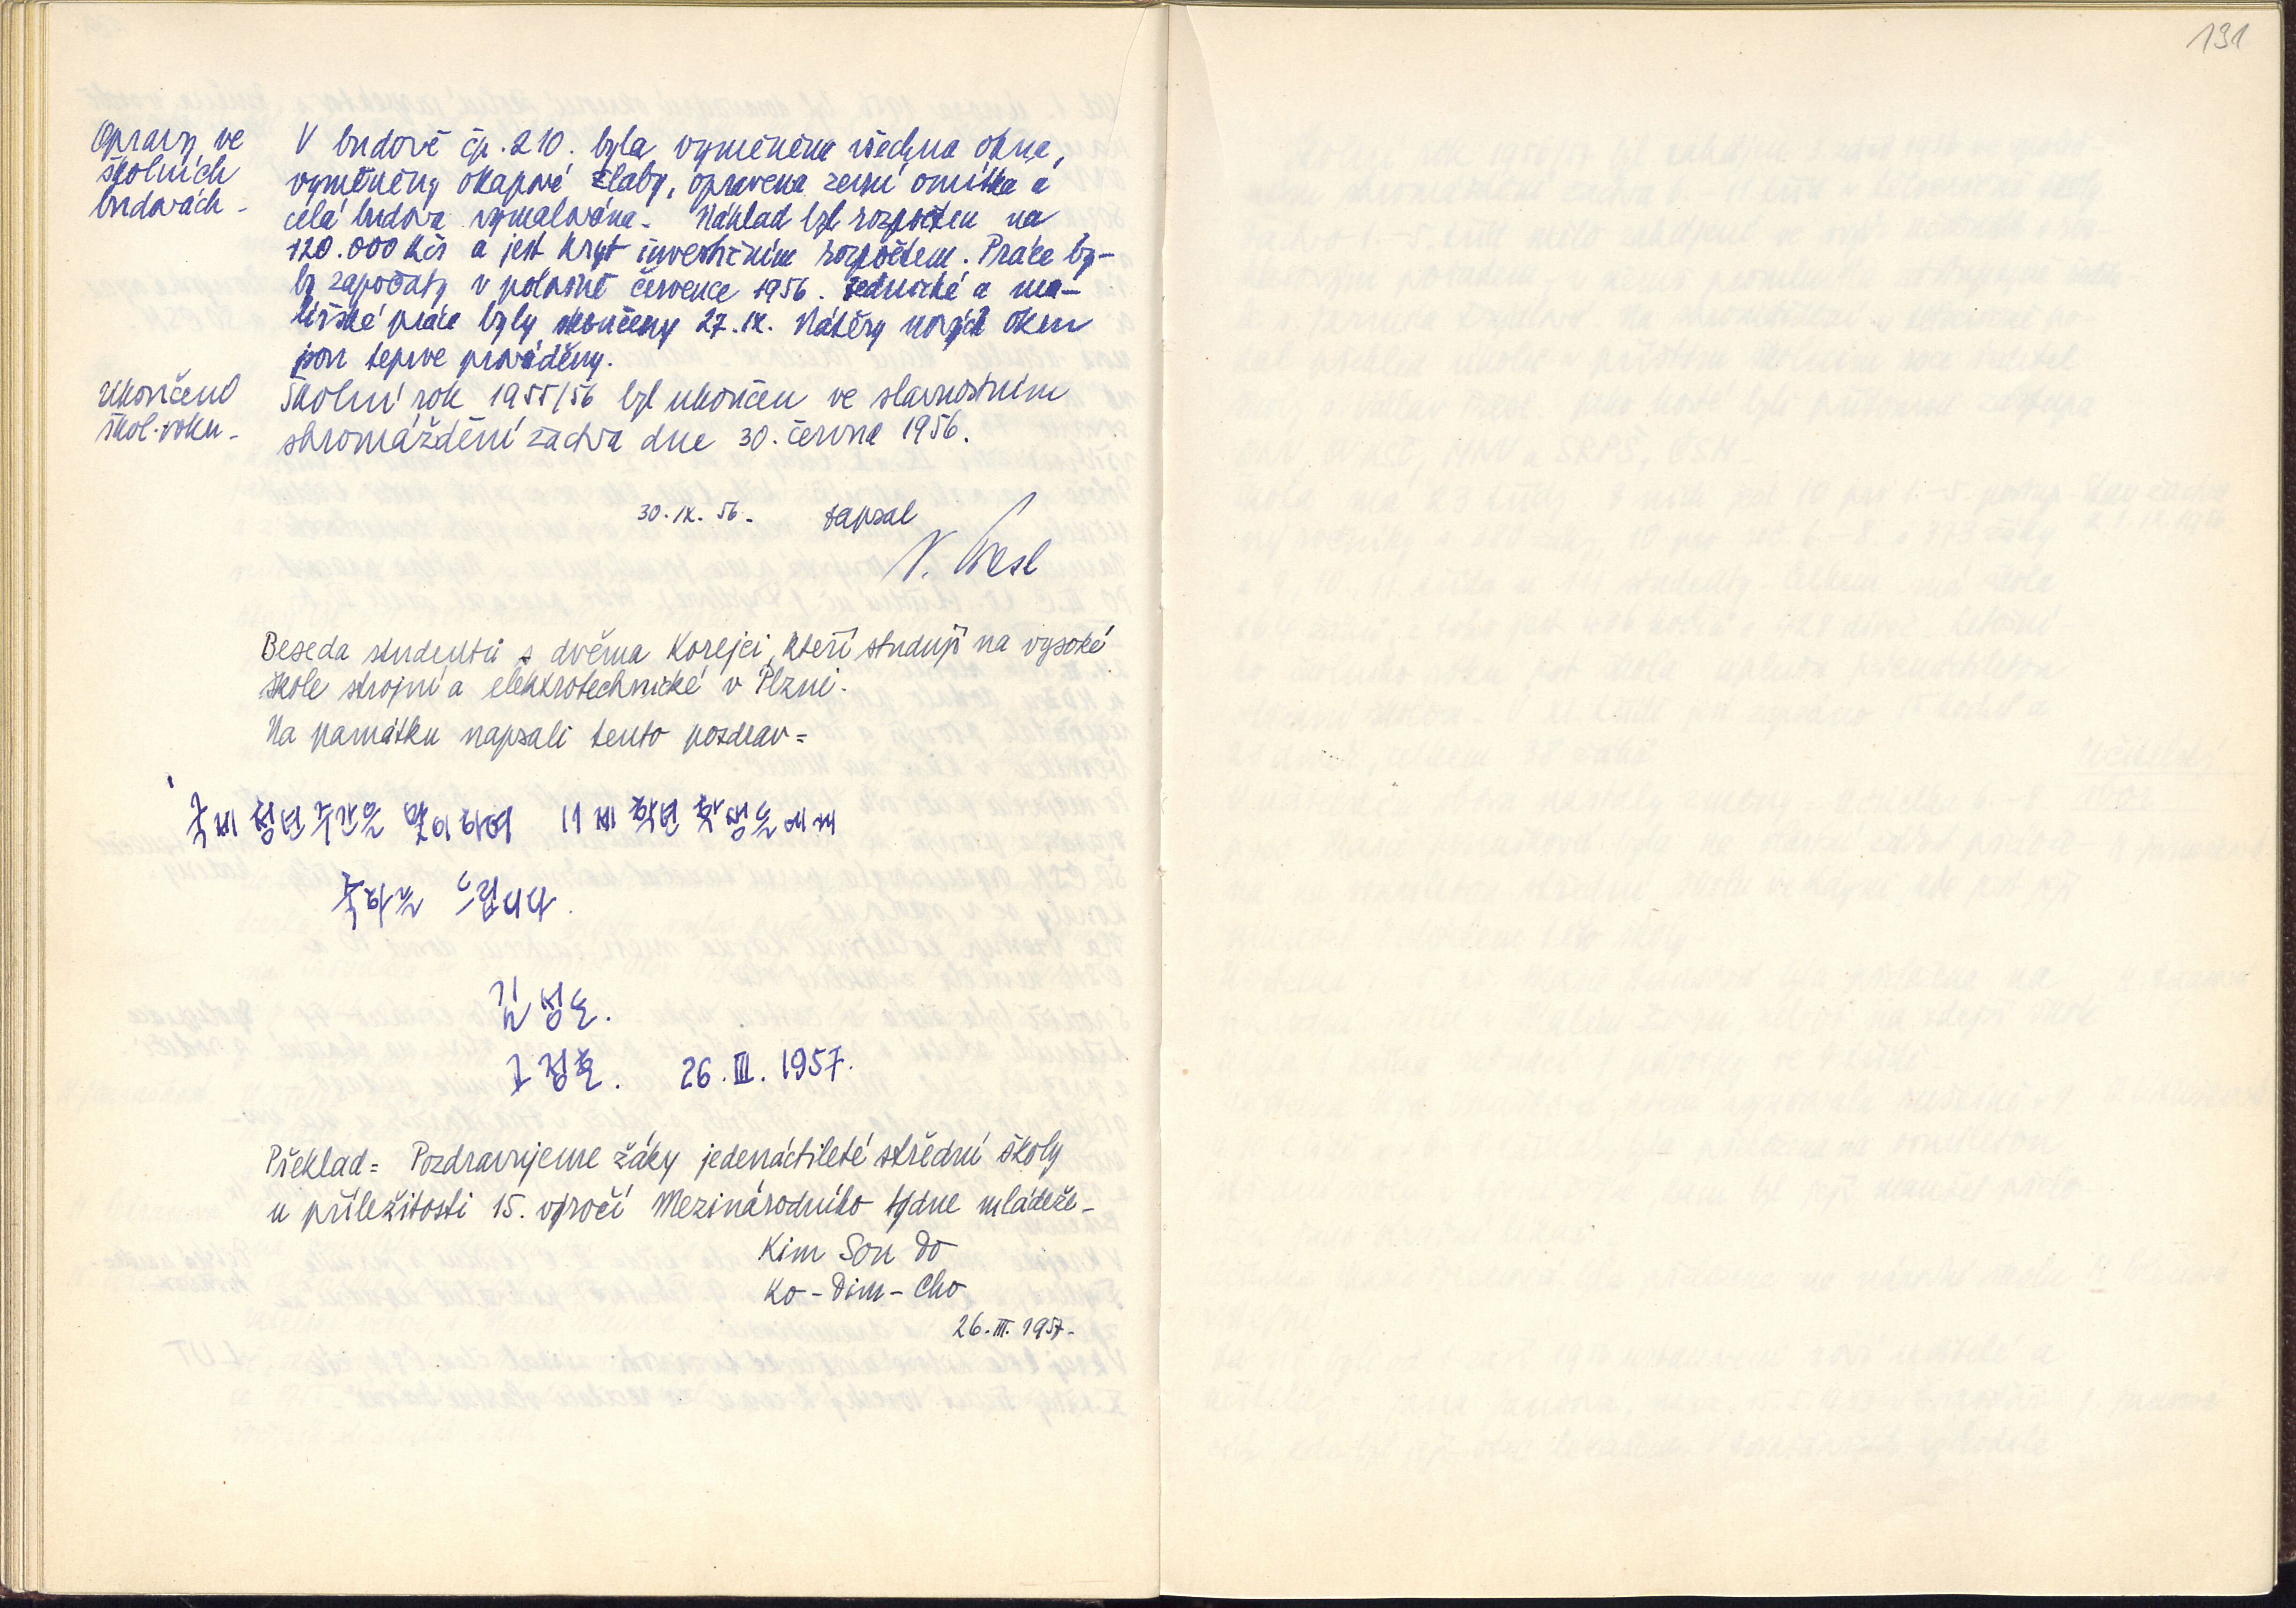 131
Opravy ve
školních
budovách -
V budově čp. 210. byla vyměněna všechna okna,
vyměněny okapové žlaby, opravena zevní omítka a
celá budova vymalována - Náklad byl rozpočten na
120.000 Kčs a jest kryt investičním rozpočtem. Práce by-
ly započaty v polovině července 1956. Zednické a ma-
lířské práce byly skončeny 27. IX. Nátěry nových oken
jsou teprve prováděny.
Ukončení
škol. roku -
Školní rok 1955/56 byl ukončen ve slavnostním
shromáždění žactva dne 30. června 1956.
30. IX. 56. - zapsal
V.
Beseda studentů s dvěma Korejci, kteří studují na vysoké
škole strojní a elektrotechnické v Plzni.
Na památku napsali tento pozdrav =
국제 청년 주간을 맞이하여 11제 학년 학생들에게
축하를 드립니다.
김성도.
고정호. 26. III. 1957.
Překlad = Pozdravujeme žáky jedenáctileté střední školy
u příležitosti 15. výročí Mezinárodního týdne mládeže -
Kim Son Do
Ko - Dim - Cho
26. III. 1957 -